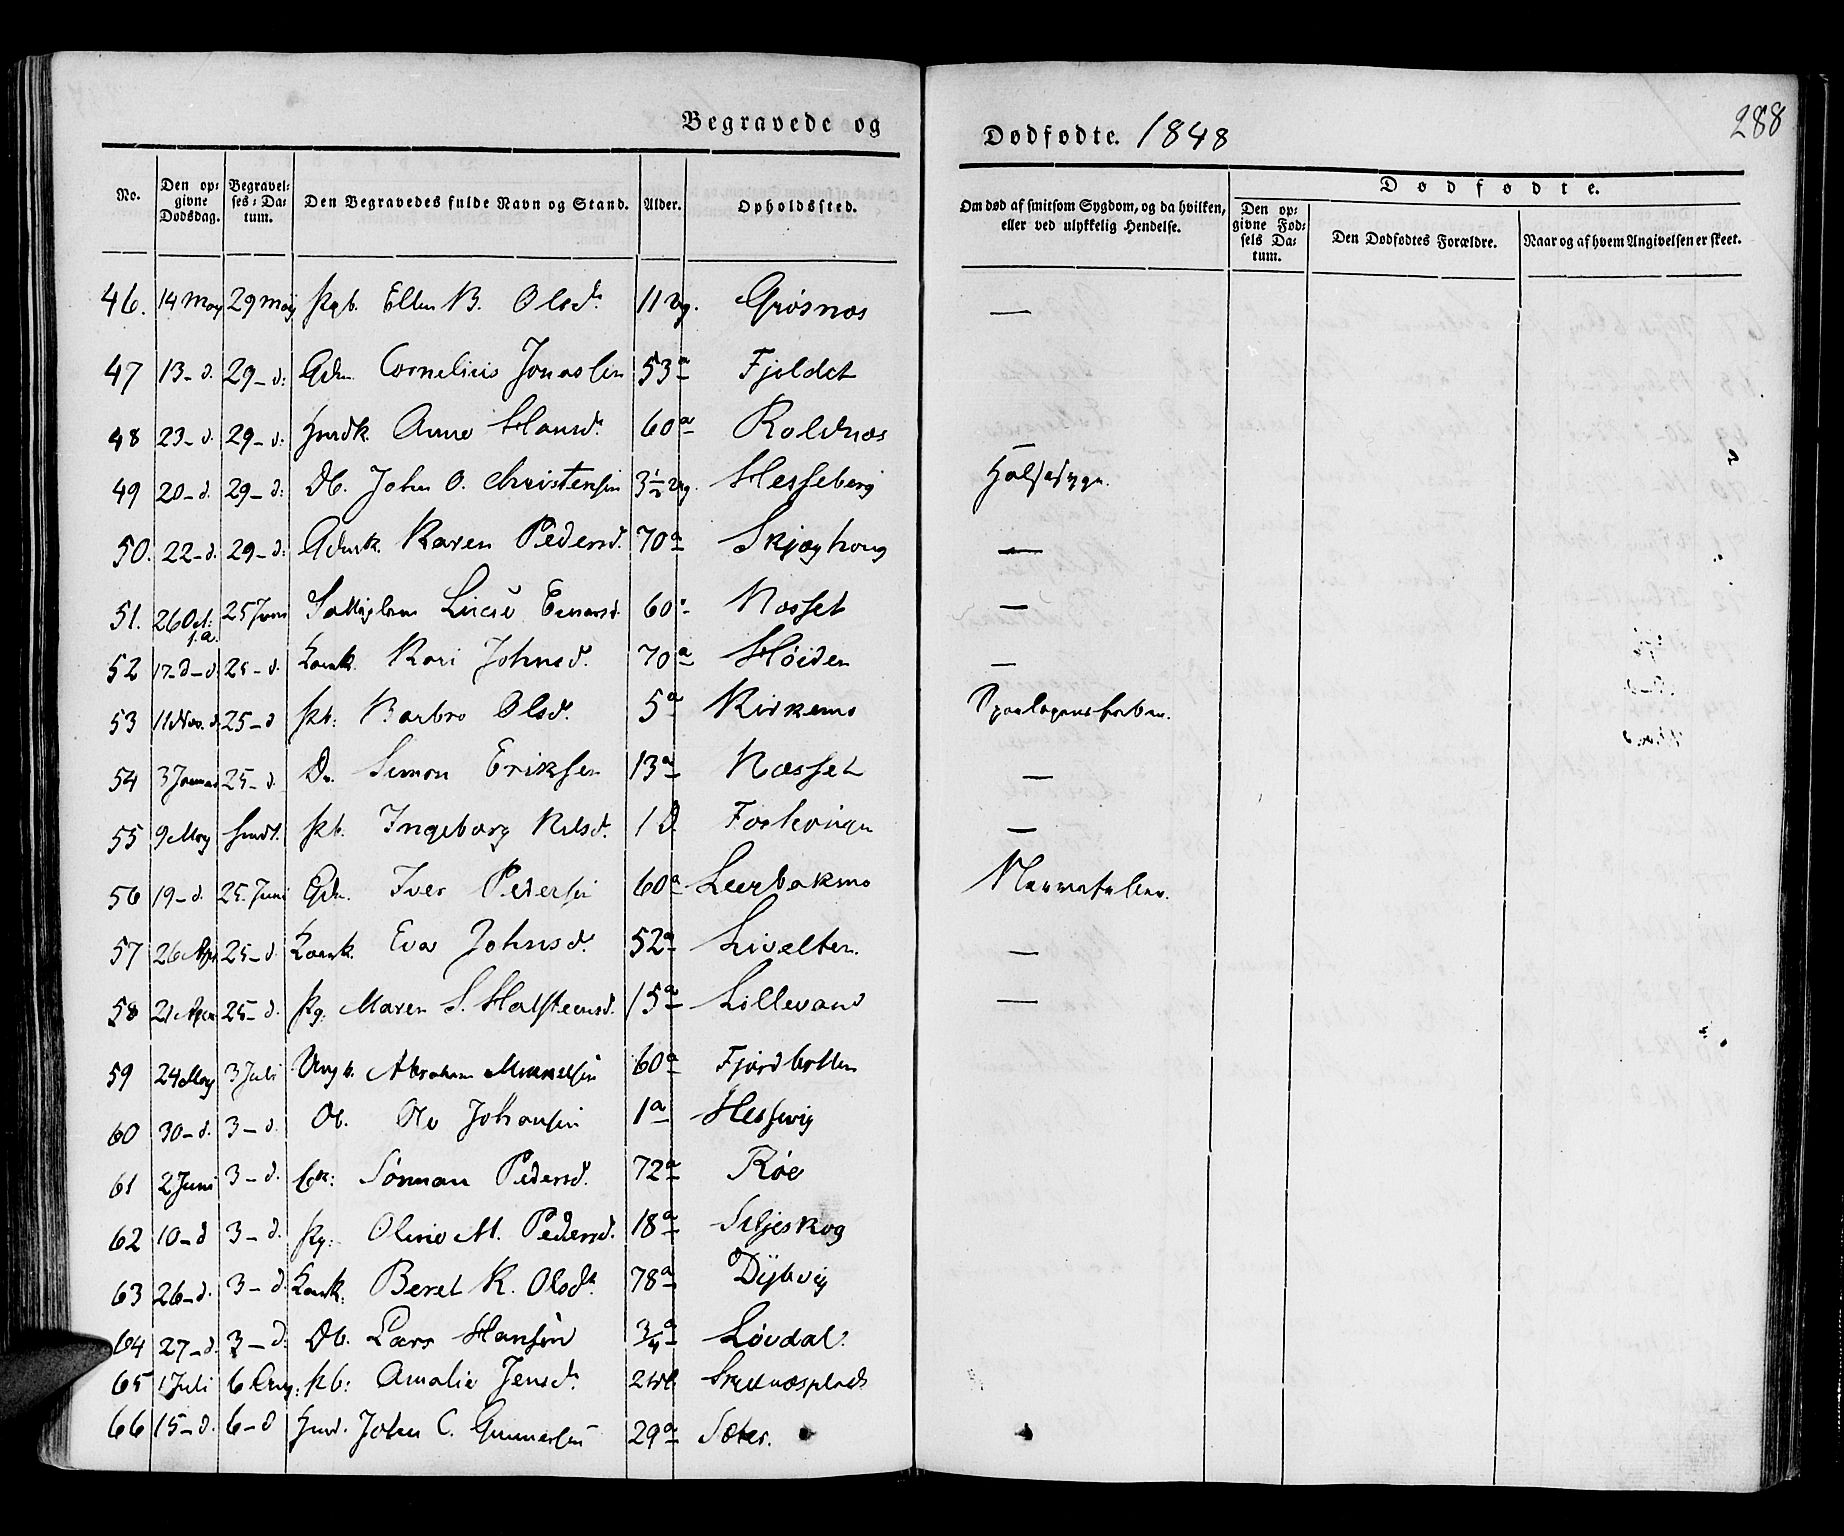 Begravede og Dødfødte. 1848
288
No. Den opgivne Dødsdag. Begravelses-Datum. Den Begravedes fulde Navn og Stand. Alder. Opholdssted. Om død af smitsom Sygdom, og da hvilken, eller ved ulykkelig Hendelse. Dødfødte. Den opgivne Fødsels Datum. Den Dødfødtes Forældre. Naar og af hvem Angivelsen er skeet.
46. 14 May 29 May Pgb. Ellen B. Olsd. 11 Ug. Grøsnæs —
47 13 - d. 29 - d: Gdm. Cornelius Jonassen 53 a Fjeldet
48 23 - d. 29 - d: Hmdk. Anne Hansd. 60 a Roldnæs —
49 20 - d. 29 - d: Db. John O. Christensen 3½ Ug. Hesseberg Halsesyge.
50. 22 - d. 29 - d: Gdmk. Karen Pedersd. 70 a Skjæghoug —
51. 26 Oct: f.a. 25 Juni Lucie Einarsd. 60 a Næsset —
52 17 - d - d. 25 - d. Kari Johnsd. 70 a Høiden —
53 11 Nov. d. 25 - d Pb: Barbro Olsd. 5 a Kirkemo
54 3 Januar 25 - d. Dr. Simon Eriksen 13 a Næsset —
55 9 May Pb. Ingeborg Nilsd. 1 D. —
56 19 - d. 25. Juni Gdm. Iver Pedersen 60 a Leerbakmo Nervefeber.
57 26 Apr 25 - d. Eva Johnsd. 52 a Livelten. —
58 21 April 25 - d. Pg. Maren S. Halsteensd. 15 a Lillevand —
59 24 May 3 Juli Ungk. Abraham 60 a Fjordbotten
60 30 - d. 3 - d. Db. Ole Johansen 1 a Hessvig
61 2 Juni 3 - d. Pedersd. 72 a Røe
62 10 - d 3 - d. Pg: Oline M. Pedersd. 18 a Siljeskog
63 26 - d. 3 - d. Beret K. Olsd. 78 a Dybvig
64 27 - d. 3 - d: Db. Lars Hansen ¾ a Løvdal.
65 1 Juli 6 Aug: Pb: Amalie Jensd.
66 15 - d. 6 - d Hmd. John C. Gunnersen 29 a Sæter.